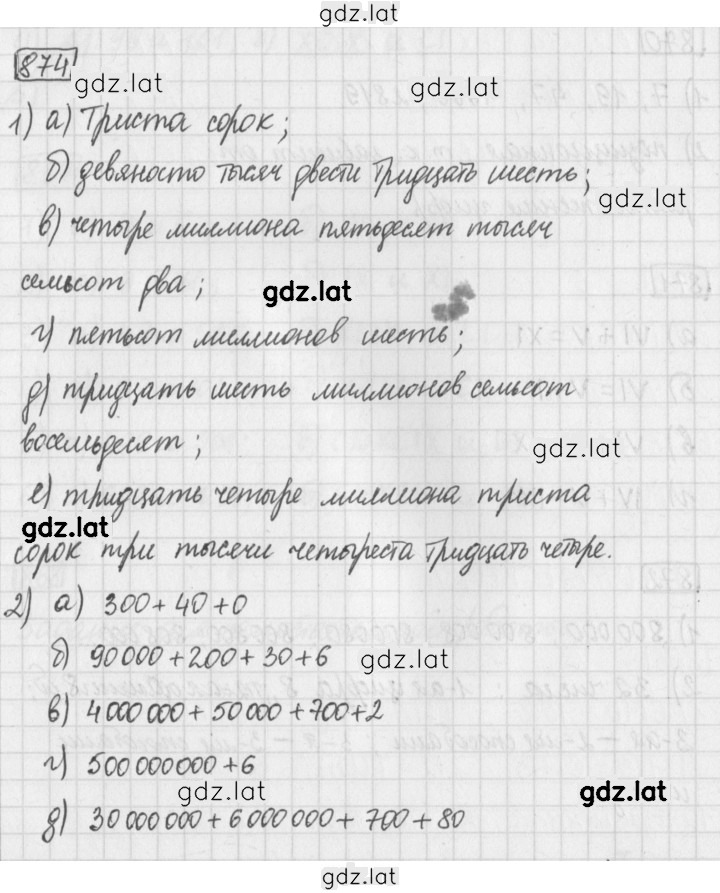 gdz.lat
874
gdz.lat
gdz.lat
1) а) Триста сорок;
б) девяносто тысяч двести тридцать шесть;
gdz.lat
в) четыре миллиона пятьдесят тысяч
семьсот два;
gdz.lat
г) пятьсот миллионов шесть;
д) тридцать шесть миллионов семьсот
восемьдесят;
gdz.lat
е) тридцать четыре миллиона триста
gdz.lat
сорок три тысячи четыреста тридцать четыре.
2) а) 300 + 40 + 0
б) 90 000 + 200 + 30 + 6
gdz.lat
в) 4 000 000 + 50 000 + 700 + 2
г) 500 000 000 + 6
gdz.lat
gdz.lat
д) 30 000 000 + 6 000 000 + 700 + 80
gdz.lat